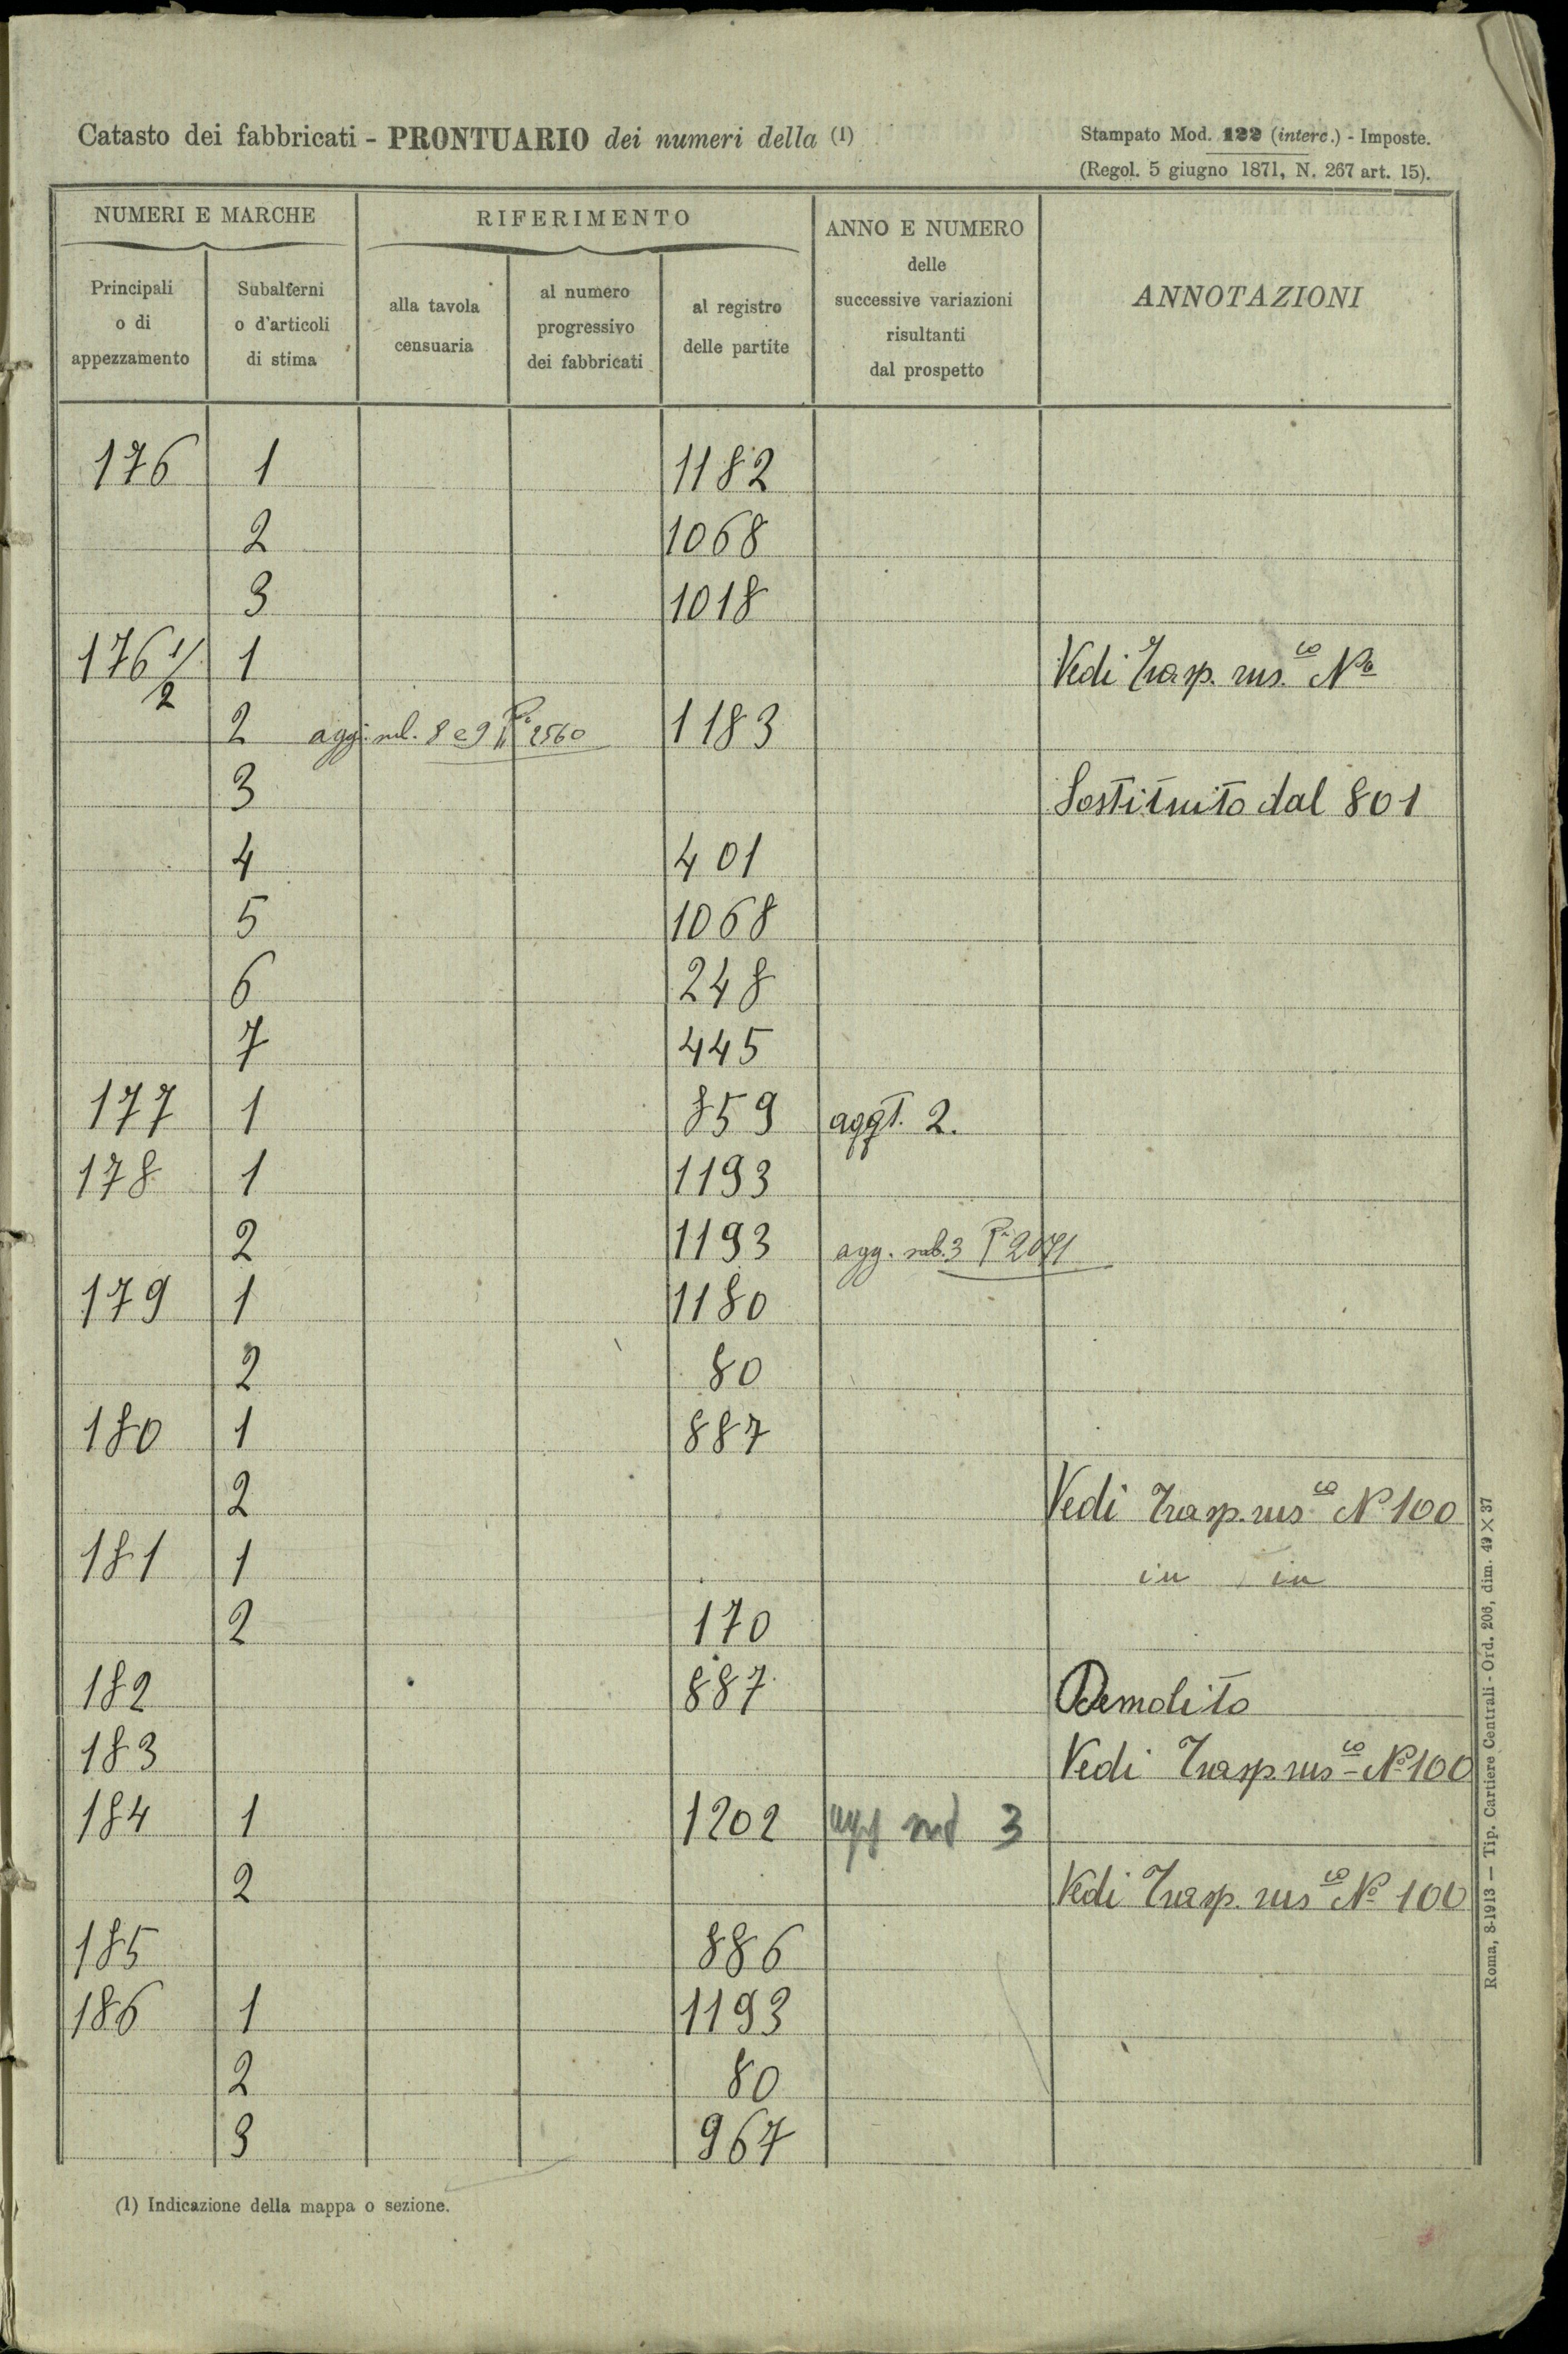 Catasto dei fabbricati - PRONTUARIO dei numeri della (1)
Stampato Mod. 122 (interc.) - Imposte.
(Regol. 5 giugno 1871, N. 267 art. 15).
NUMERI E MARCHE
RIFERIMENTO
ANNO E NUMERO
delle
successive variazioni
risultanti
dal prospetto
ANNOTAZIONI
Principali
o di
appezzamento
Subalterni
o d'articoli
di stima
alla tavola
censuaria
al numero
progressivo
dei fabbricati
al registro
delle partite
176 1 1182
2 1068
3 1018
176 1/2 1 Vedi Trasp. rus.co No
2 agg. sub. 8 e 9 Pa 2560 1183
3 Sostituito dal 801
4 401
5 1068
6 248
7 445
177 1 859 aggt. 2.
178 1 1193
2 1193 agg. sub. 3 Pa 2071
179 1 1180
2 80
180 1 887
2 Vedi Trasp. rusco No 100
181 1 in in
2 170
182 887 Demolito
183 Vedi Trasp rusco No 100
184 1 1202 agg sub 3
2 Vedi Trasp. rusco No 100
185 886
186 1 1193
2 80
3 967
(1) Indicazione della mappa o sezione.
Roma, 8-1913 — Tip. Cartiere Centrali - Ord. 206, dim. 49 × 37